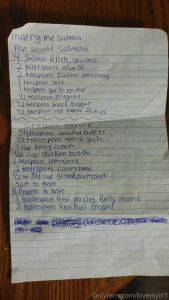 marry me salmon
Pan seared Salmon
4 Salmon fillets, skinless
2 tablespoons olive oil
2 teaspoons Italian seasoning
1 teaspoon salt
1 teaspoon garlic powder
1/2 teaspoon oregano
1/2 teaspoon black pepper
1/2 teaspoon red pepper flakes
Cream sauce
3 tablespoons unsalted butter
1 1/2 tablespoons minced garlic
1 cup heavy cream
1/2 cup chicken broth
1 teaspoon
2 tablespoons cornstarch
1/2 cup grated parmesan
Salt to taste
Pepper to taste
1 tablespoon fresh parsley, finely chopped
2 tablespoons fresh basil chopped
OnlyFans.com/lovemylif3